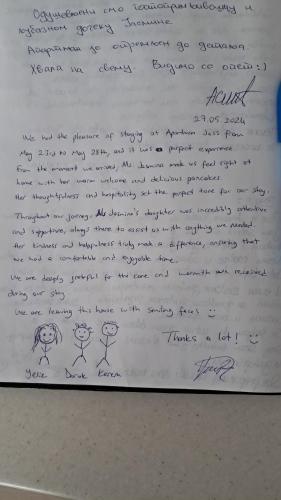 Одушевљени смо гостопримљивошћу и
љубазном дочеку Јасмине.
Апартман је опремљен до детаља.
Хвала на свему. Видимо се опет :)
27.05.2024
We had the pleasure of staying at Apartman Jass from
May 23rd to May 28th, and it was a perfect experience.
From the moment we arrived, Ms Jasmina made us feel right at
home with her warm welcome and delicious pancakes.
Her thoughtfulness and hospitality set the perfect tone for our stay.
Throughout our journey, Ms Jasmine's daughter was incredibly attentive
and supportive, always there to assist us with anything we needed.
Her kindness and helpfulness truly made a difference, ensuring that
we had a comfortable and enjoyable time.
We are deeply grateful for the care and warmth we received
during our stay.
We are leaving this house with smiling faces :)
Thanks a lot! :)
Doruk Kerem